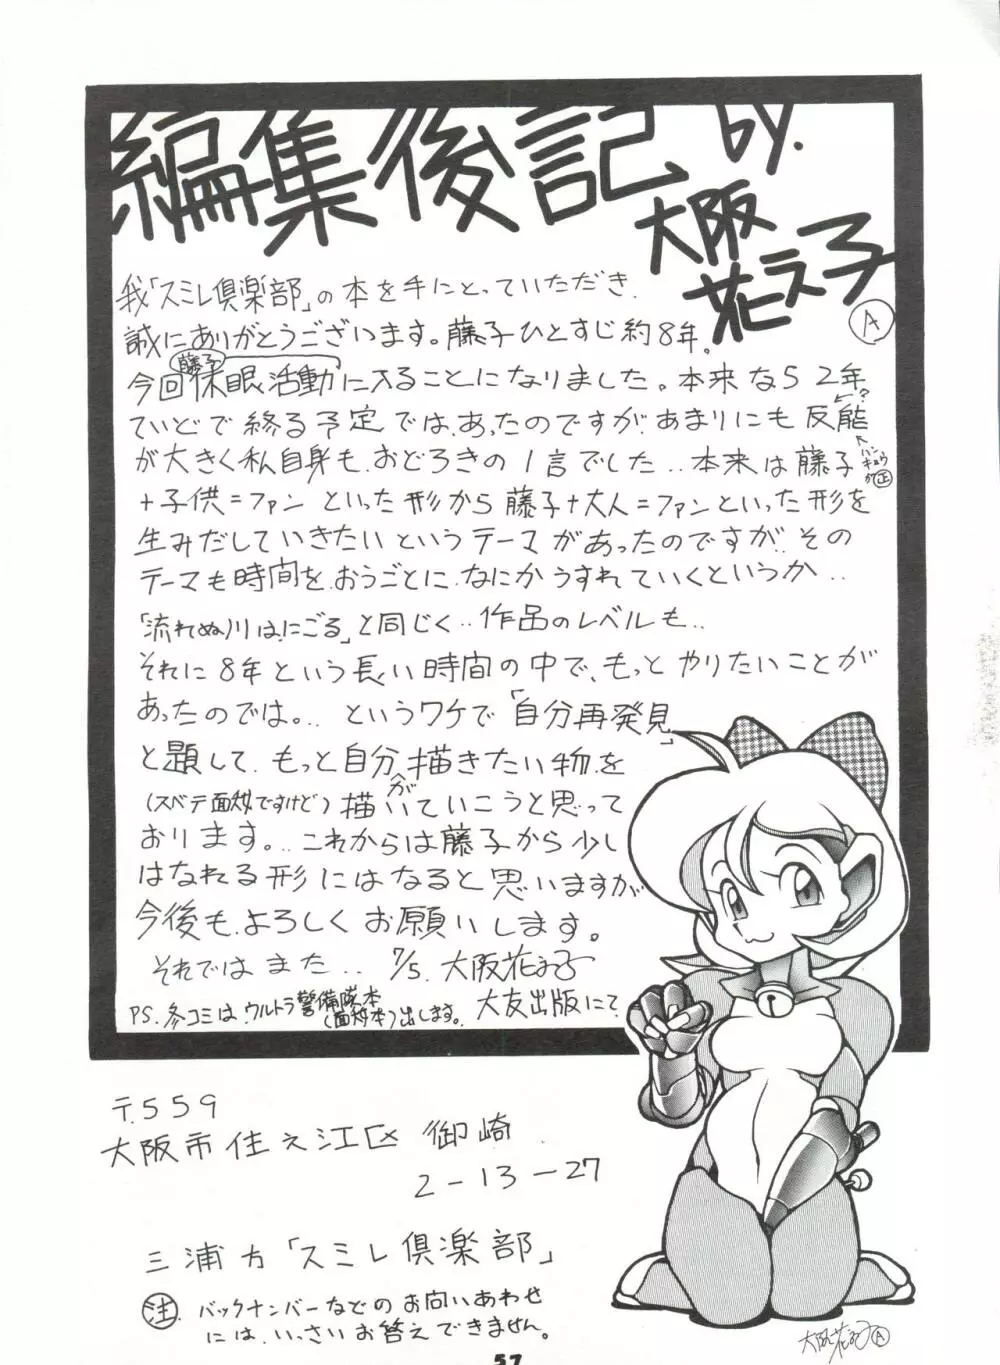 編集後記 by.
大阪
花え子
Ⓐ
我「スミレ倶楽部」の本を手にとっていただき.
誠にありがとうございます。藤子ひとすじ約8年.
藤子
今回休眠活動に入ることになりました。本来なら2年
ていどで終る予定では、あったのですが、あまりにも反能
←?
ハンキョウが正
が大きく私自身も、おどろきの1言でした..本来は藤子
+子供=ファンといった形から藤子+大人=ファンといった形を
生みだしていきたいというテーマがあったのですが、その
テーマも時間を、おうごとに、なにかうすれていくというか..
「流れぬ川は、にごる」と同じく..作品のレベルも..
それに8年という長い時間の中で、もっとやりたいことが
あったのでは。..というワケで「自分再発見」
と題して、もっと自分が描きたい物を
(スベテ面妖ですけど)描いていこうと思って
おります。..これからは藤子から少し
はなれる形にはなると思いますが
今後も、よろしくお願いします。
それではまた.. 7/5. 大阪花え子
大友出版にて
PS. 冬コミは、ウルトラ警備隊本
(面妖本)出します。
〒559
大阪市住之江区御崎
2-13-27
三浦方「スミレ倶楽部」
注 バックナンバーなどのお問いあわせ
には、いっさいお答えできません。
大阪花え子Ⓐ
57